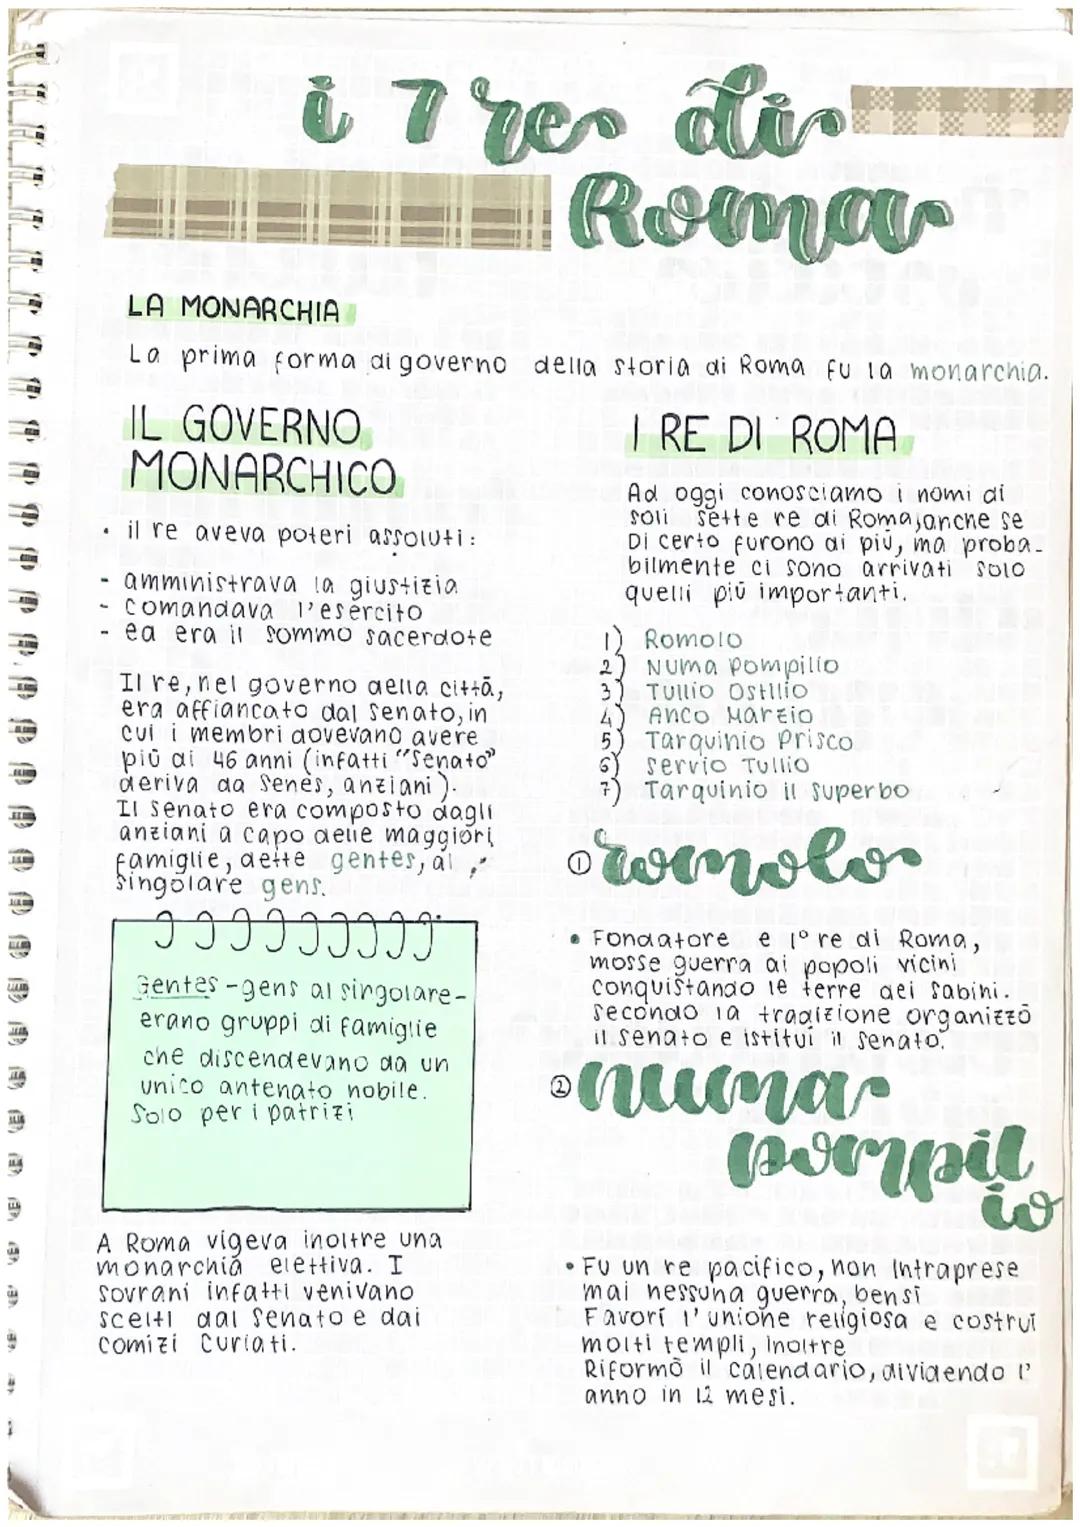 i 7 re di
Roma
LA MONARCHIA
La prima forma di governo della storia di Roma fu la monarchia.
IL GOVERNO
MONARCHICO
• il re aveva poteri assoluti:
- amministrava la giustizia
- comandava l'esercito
- ed era il sommo sacerdote
Il re, nel governo della città,
era affiancato dal Senato, in
cui i membri dovevano avere
più di 46 anni (infatti "Senato"
deriva da Senes, anziani).
Il Senato era composto dagli
anziani a capo delle maggiori
famiglie, dette gentes, al
singolare gens.
Gentes - gens al singolare -
erano gruppi di famiglie
che discendevano da un
unico antenato nobile.
Solo per i patrizi
A Roma vigeva inoltre una
monarchia elettiva. I
sovrani infatti venivano
scelti dal Senato e dai
comizi curiati.
I RE DI ROMA
Ad oggi conosciamo i nomi di
soli sette re di Roma, anche se
Di certo furono di più, ma proba-
bilmente ci sono arrivati solo
quelli più importanti.
1) Romolo
2) Numa Pompilio
3) Tullio Ostilio
4) Anco Marzio
5) Tarquinio Prisco
6) Servio Tullio
7) Tarquinio il Superbo
① romolo
• Fondatore e 1° re di Roma,
mosse guerra ai popoli vicini
conquistando le terre dei Sabini.
Secondo la tradizione organizzò
il senato e istituì il senato.
② numa
pompil
io
• Fu un re pacifico, non intraprese
mai nessuna guerra, bensì
Favorì l'unione religiosa e costruì
molti templi, Inoltre
Riformò il calendario, dividendo l'
anno in 12 mesi.